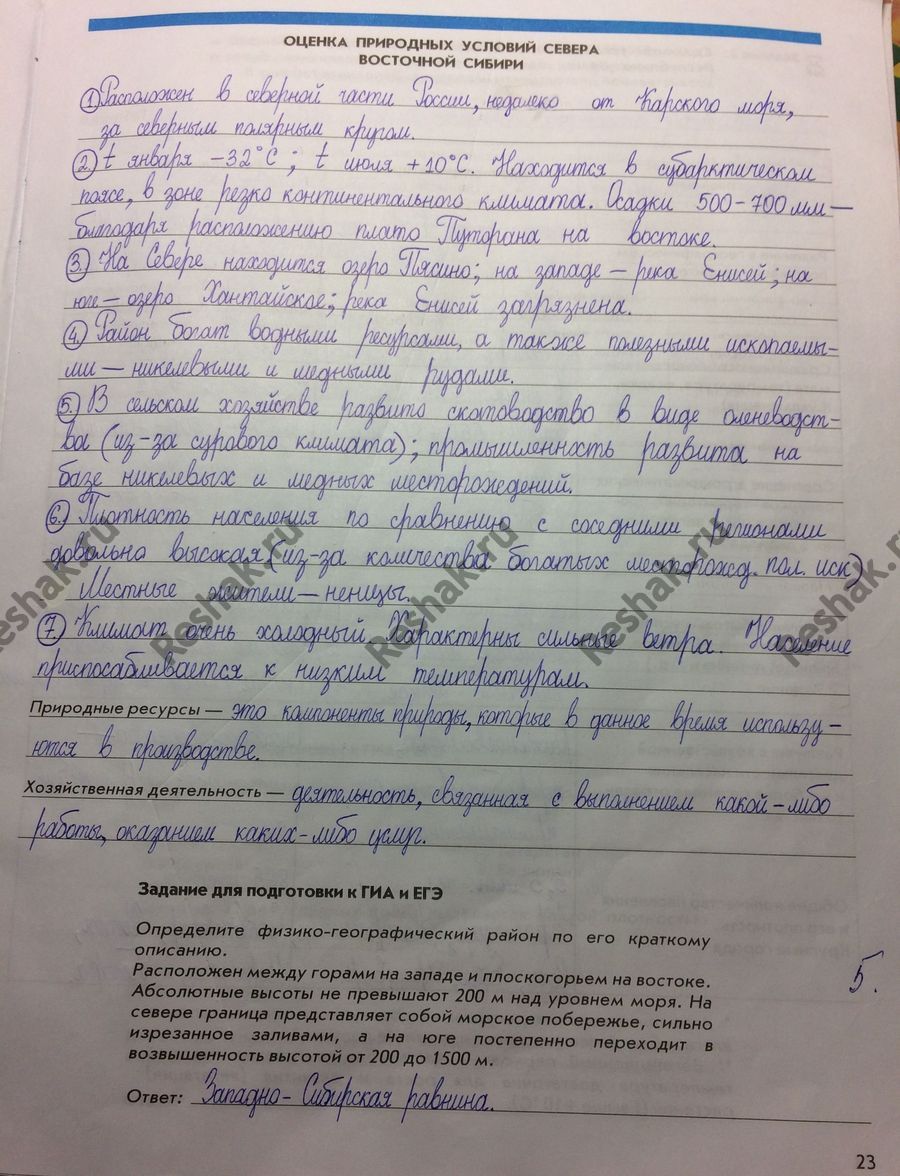 ОЦЕНКА ПРИРОДНЫХ УСЛОВИЙ СЕВЕРА
ВОСТОЧНОЙ СИБИРИ
1) Расположен в северной части России, недалеко от Карского моря,
за северным полярным кругом.
2) t января -32°С; t июля +10°С. Находится в субарктическом
поясе, в зоне резко континентального климата. Осадки 500-700 мм —
благодаря расположению плато Путорана на востоке.
3.) На Севере находится озеро Пясино; на западе — река Енисей; на
юге — озеро Хантайское; река Енисей загрязнена.
4.) Район богат водными ресурсами, а также полезными ископаемы-
ми — никелевыми и медными рудами.
5.) В сельском хозяйстве развито скотоводство в виде оленеводст-
ва (из-за сурового климата); промышленность развита на
базе никелевых и медных месторождений.
6.) Плотность населения по сравнению с соседними регионами
довольно высокая (из-за количества богатых месторожд. пол. иск)
Местные жители — ненцы.
7.) Климат очень холодный. Характерны сильные ветра. Население
приспосабливается к низким температурам.
Природные ресурсы — это компоненты природы, которые в данное время использу-
ются в производстве.
Хозяйственная деятельность — деятельность, связанная с выполнением какой-либо
работы, оказанием каких-либо услуг.
Задание для подготовки к ГИА и ЕГЭ
Определите физико-географический район по его краткому
описанию.
Расположен между горами на западе и плоскогорьем на востоке.
Абсолютные высоты не превышают 200 м над уровнем моря. На
севере граница представляет собой морское побережье, сильно
изрезанное заливами, а на юге постепенно переходит в
возвышенность высотой от 200 до 1500 м.
5.
Ответ: Западно-Сибирская равнина.
23
Reshak.ru
Reshak.ru
Reshak.ru
Reshak.ru
Reshak.ru